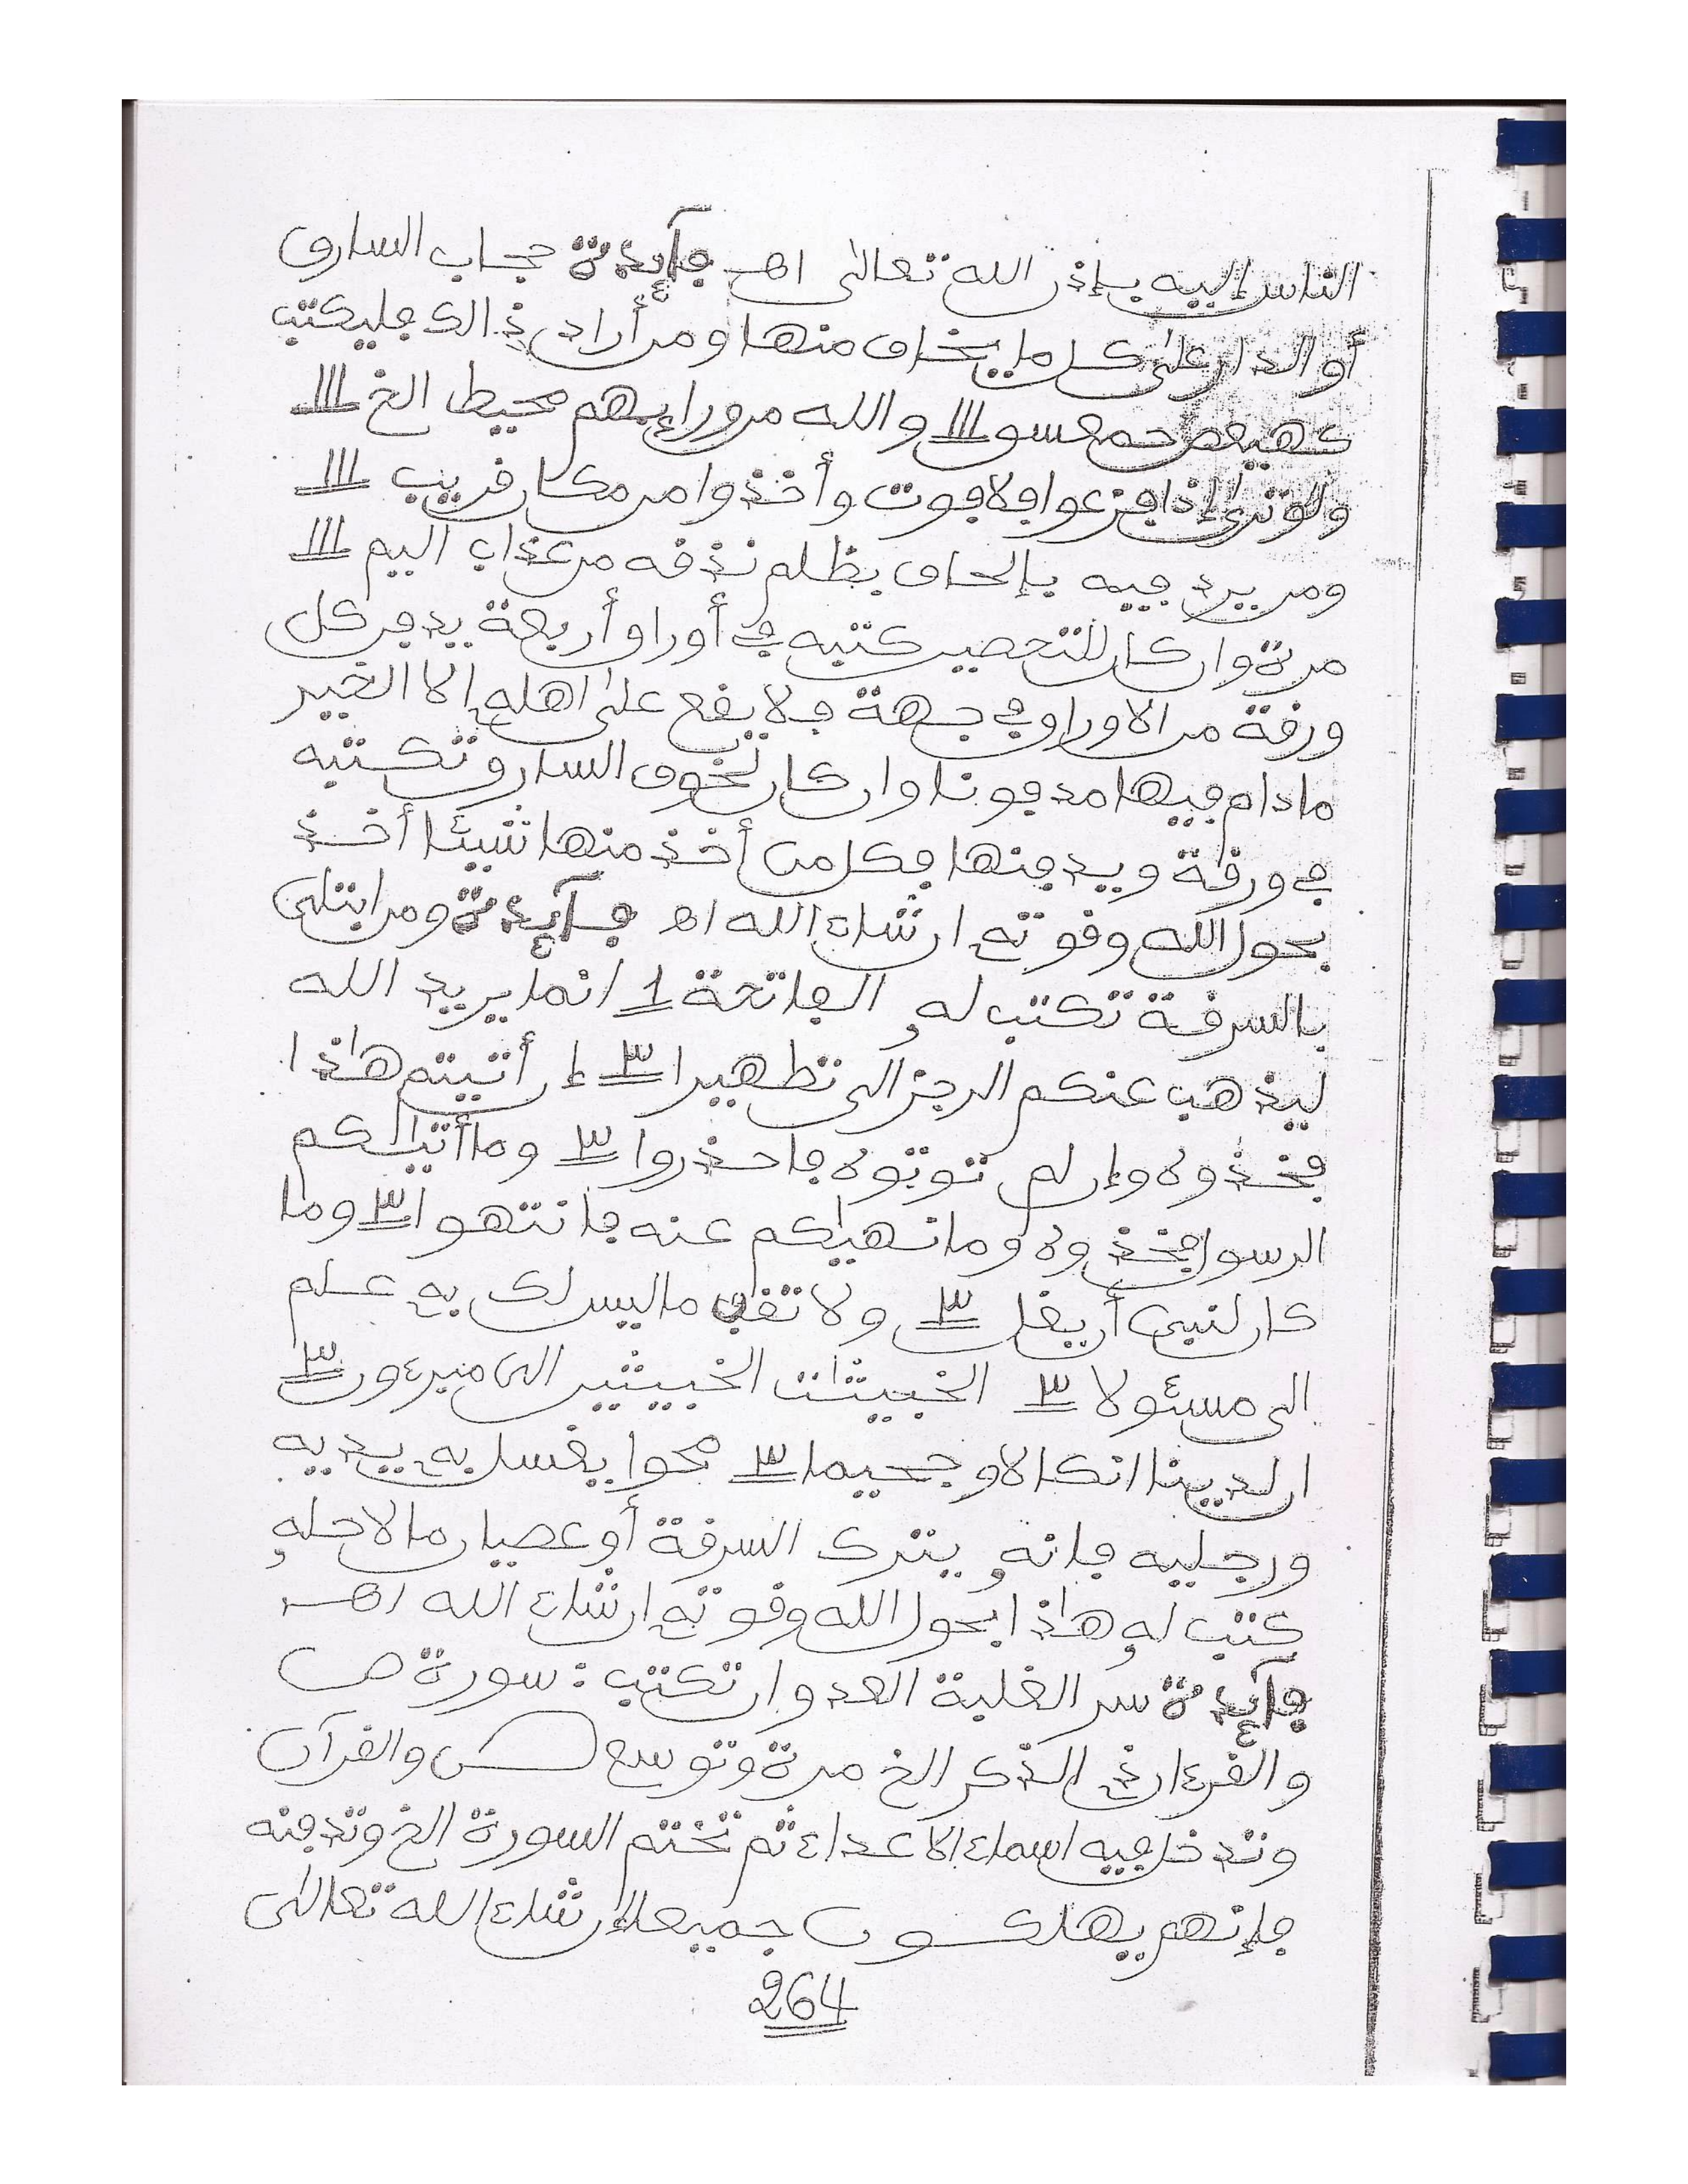 الناس إليه بإذن الله تعالى اهـ فآئدة حجاب السارق
أو الدار على كل ما يخاف منها ومن أراد ذالك فليكتب
كهيعص حمعسق ااا والله من ورائهم محيط الخ ااا
ولو ترى إذ افزعوا فلا فوت وأخذوا من مكان قريب ااا
ومن يرد فيه بإلحاد بظلم نذقه من عذاب اليم ااا
مرة وان كان للتحصين كتبه في أوراق أربعة يدفن كل
ورقة من الاوراق في جهة فلا يقع على اهله الا الخير
مادام فيها مدفونا وان كان لخوف السارق تكتبه
في ورقة ويدفنها فكل من أخذ منها شيئا أخذ
بحول الله وقوته ان شاء الله اهـ فآئدة ومن ابتلى
بالسرقة تكتب له الفاتحة 1 انما يريد الله
ليذهب عنكم الرجز الى تطهيرا ٣ إن أتيتم هاذا
فخذوه وإن لم توتوه فاحذروا ٣ وما أتيكم
الرسول فخذوه وما نهيكم عنه فانتهوا ٣ وما
كان لنبي أن يغل ٣ ولا تقف ما ليس لك به علم
الى مسئولا ٣ الخبيثات الخبيثين الى مبرءون ٣
ان لدينا انكالا وجحيما ٣ محوا يغسل به يديه
ورجليه فانه يترك السرقة أو عصيان مالاحله
كتب له هاذا بحول الله وقوته ان شاء الله اهـ
فآئدة سر الغلبة العدو ان تكتب : سورة ص
والقرءان ذي الذكر الخ مرة وتوسع ص والقرآن
وتدخل فيه اسماء الاعداء ثم تختم السورة الخ وتدفنه
فإنهم يهلكون جميعا إن شاء الله تعالى
264